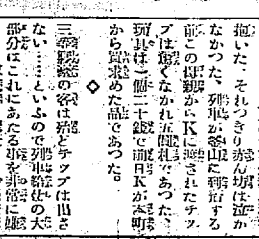 抱いた、それつきり赤ん坊は泣か
なかつた、列車が釜山に到着する
前この母親からKに渡されたチツ
プは驚くなかれ五円札であつた、
玩具は一個二十銭で前日Kが本町
から買求めた品であつた。
◇
三等寝台の客は殆どチツプは出さ
ない……といふので列車給仕の大
部分はこれにあたる事を非常に嫌